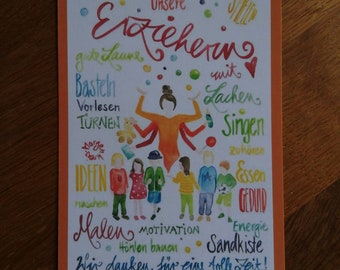 Unsere
Erzieherin
gute Laune
mit
Basteln
Lachen
Vorlesen
TURNEN
Singen
zuhören
IDEEN
Essen
naschen
GEDULD
Malen
MOTIVATION
Energie
Höhlen bauen
Sandkiste
Wir danken für eine tolle Zeit!